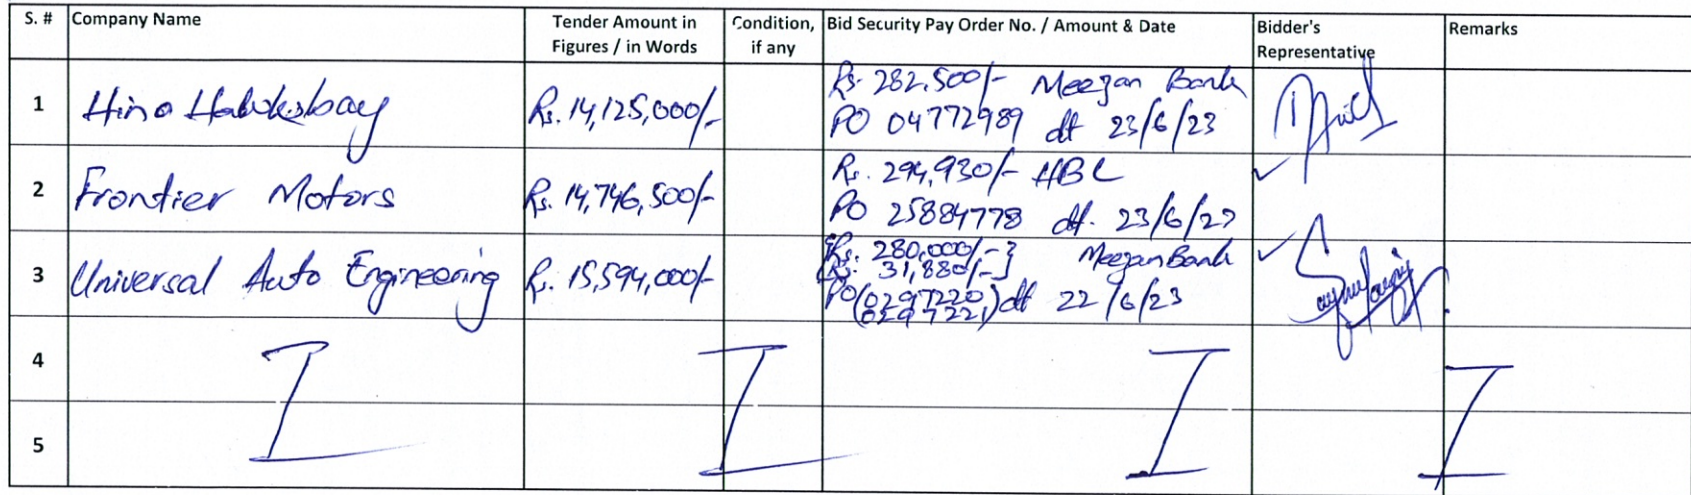 S. # Company Name Tender Amount in Figures / in Words Condition, if any Bid Security Pay Order No. / Amount & Date Bidder's Representative Remarks
1 Hino Hawksbay Rs. 14,125,000/- Rs. 282,500/- Meezan Bank
PO 04772989 dt 23/6/23
2 Frontier Motors Rs. 14,746,500/- Rs. 294,930/- HBL
PO 25884778 dt. 23/6/23
3 Universal Auto Engineering Rs. 15,594,000/- {Rs. 280,000/-} Meezan Bank
{Rs. 31,880/-}
PO (0297220,) dt 22/6/23
(0297221,)
4
5